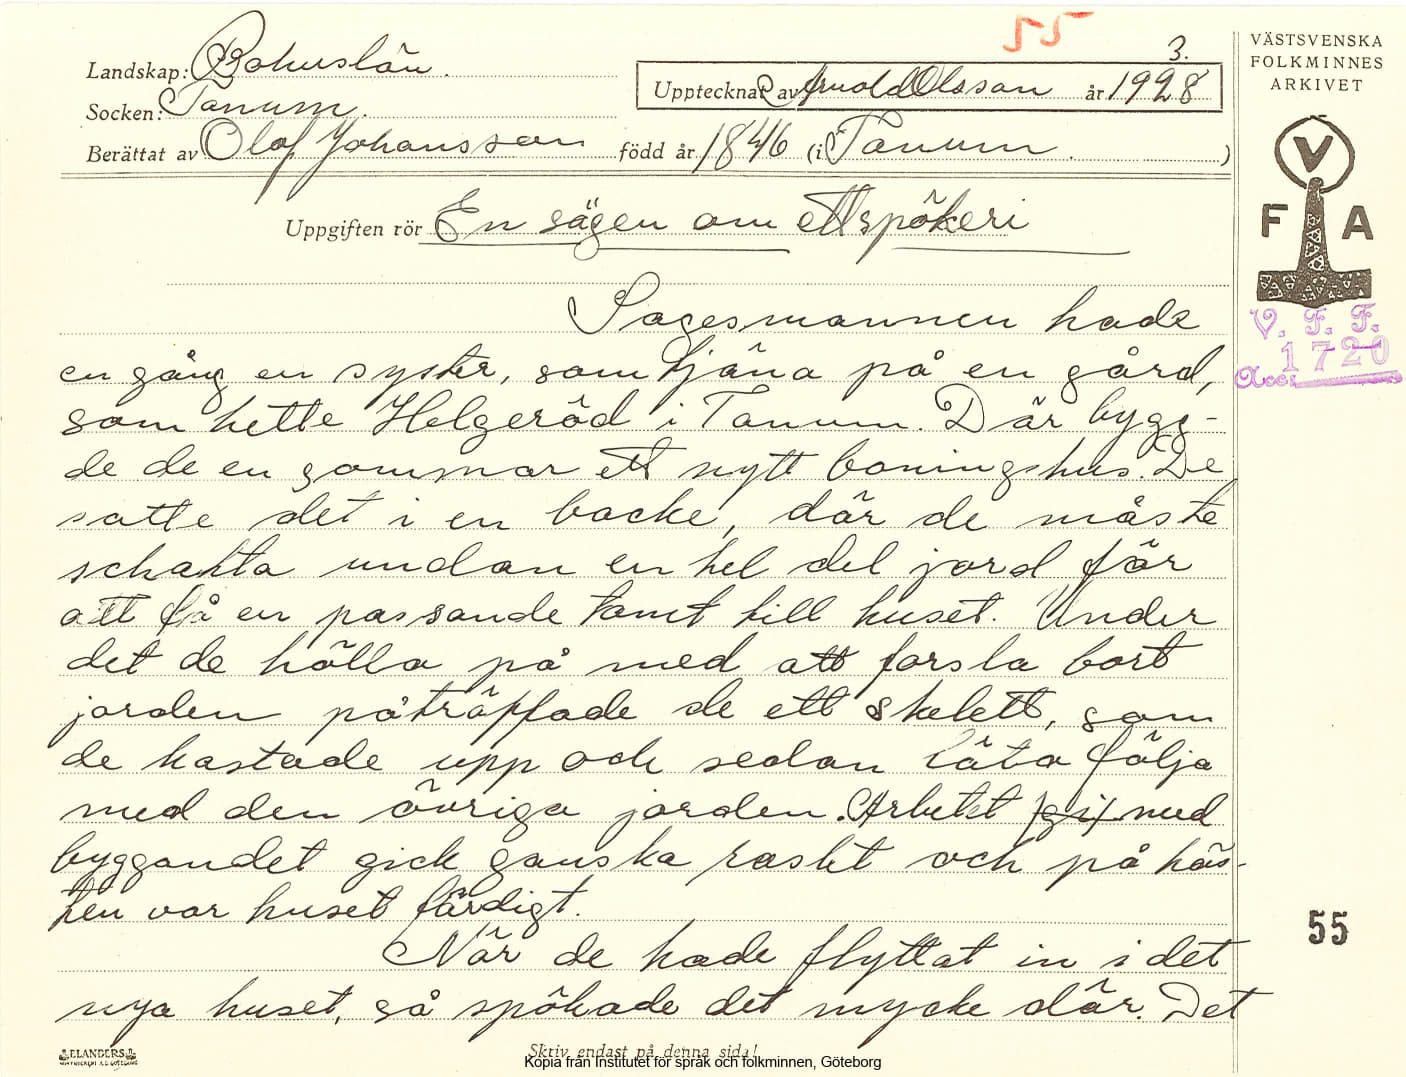 55
3.
Landskap: Bohuslän.
Upptecknat av Arnold Olsson år 1928
Socken: Tanum.
Berättat av Olof Johansson född år 1846 (i Tanum.)
Uppgiften rör En sägen om ett spökeri
Sagesmannen hade
en gång en syster, som tjäna på en gård,
som hette Helgeröd i Tanum. Där bygg-
de de en sommar ett nytt boningshus. De
satte det i en backe, där de måste
schakta undan en hel del jord för
att få en passande tomt till huset. Under
det de hölla på med att forsla bort
jorden påträffade de ett skelett, som
de kastade upp och sedan läto följa
med den övriga jorden. Arbetet (gi) med
byggandet gick ganska raskt och på hös-
ten var huset färdigt.
När de hade flyttat in i det
nya huset, så spökade det mycke där. Det
ELANDERS
Skriv endast på denna sida!
Kopia från Institutet för språk och folkminnen, Göteborg
VÄSTSVENSKA
FOLKMINNES
ARKIVET
V
F A
V. F. F.
1720
Acc.
55